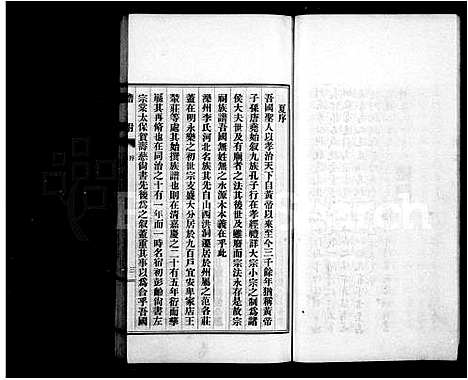 夏序
吾國聖人以孝治天下自黃帝以來至今三千餘年猶稱黃帝
子孫唐堯始叙九族孔子行在孝經禮詳大宗小宗之制爲諸
侯大夫世及有廟者之法其後世及雖廢而宗法永存是故宗
祠族譜吾國無姓無之永源本本義在乎此
灤州李氏河北名族其先自山西洪洞遷居於州屬之范各莊
蓋在明永樂之初世宗支盛大分居於九百戶宜安卑家店王
輦莊等處其始撰族譜也則在清嘉慶之二十有五年衍而肇
展其再脩也在同治之十有一年而一時名宿初彭齡尙書左
宗棠太保賀壽慈尙書先後爲之叙蓋重其事以爲合乎吾國
譜
序
三